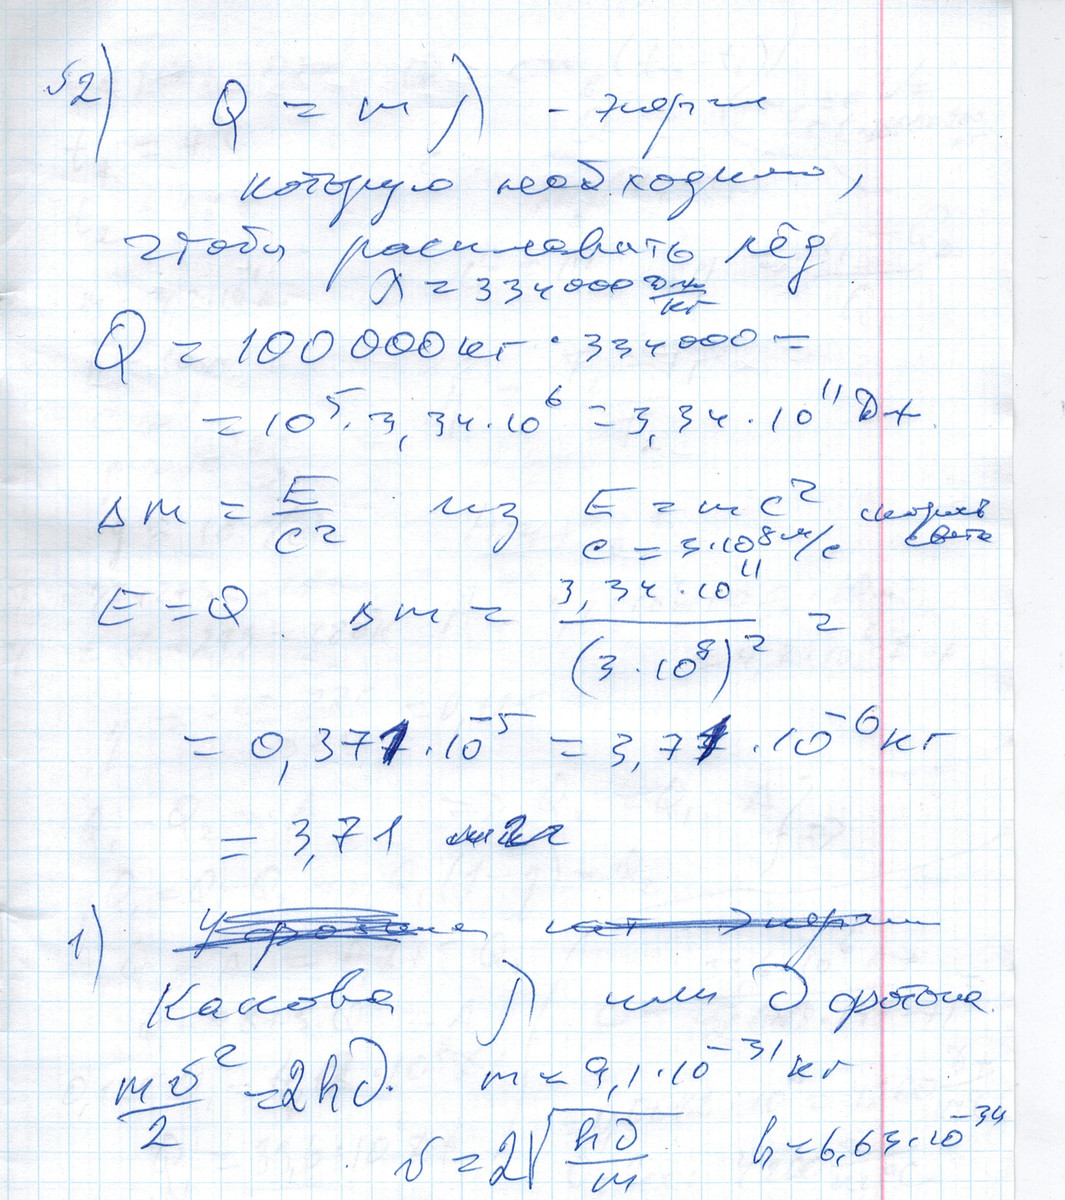 52) Q = mλ - энергия
которую необходимо,
чтобы расплавить лёд
λ = 334000 Дж/кг
Q = 100 000 кг · 334000 =
= 10⁵ · 3,34 · 10⁶ = 3,34 · 10¹¹ Дж
Δm = E/c² из E = mc² скорость
c = 3·10⁸ м/с света
E = Q. Δm = 3,34 · 10¹¹/(3 · 10⁸)² =
= 0,371 · 10⁻⁵ = 3,71 · 10⁻⁶ кг
= 3,71
1)
Какова λ или ν фотона.
mv²/2 = 2hν. m = 9,1 · 10⁻³¹ кг
v = 2√(hν/m) h = 6,63 · 10⁻³⁴